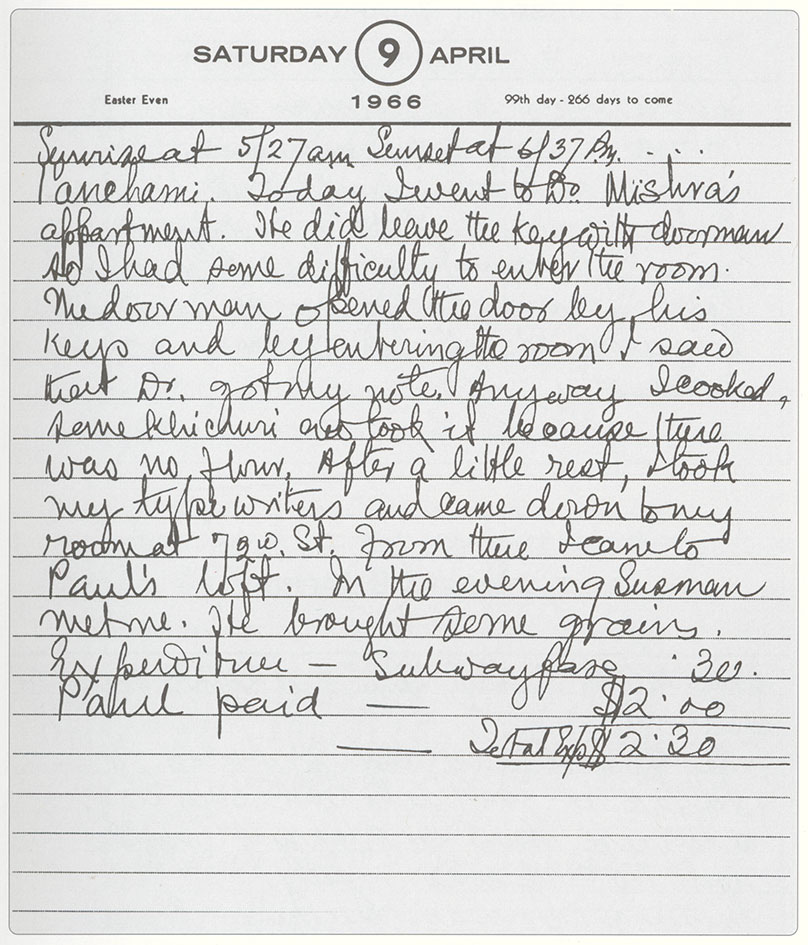 SATURDAY 9 APRIL
Easter Even 1966 99th day - 266 days to come
Sunrise at 5/27 am Sunset at 6/37 Pm. . . .
Panchami. Today I went to Dr. Mishra's
appartment. He did leave the key with doorman
so I had some difficulty to enter the room.
The door man opened the door by his
keys and by entering the room I saw
that Dr. got my note. Anyway I cooked,
some khichuri and took it because there
was no flour. After a little rest, I took
my typewriters and came down to my
room at 72w. St. From there I came to
Paul's loft. In the evening Susman
met me. He brought some grains.
Expenditure — Subway fare .30.
Paul paid — $2.00
— Total Exp $2.30